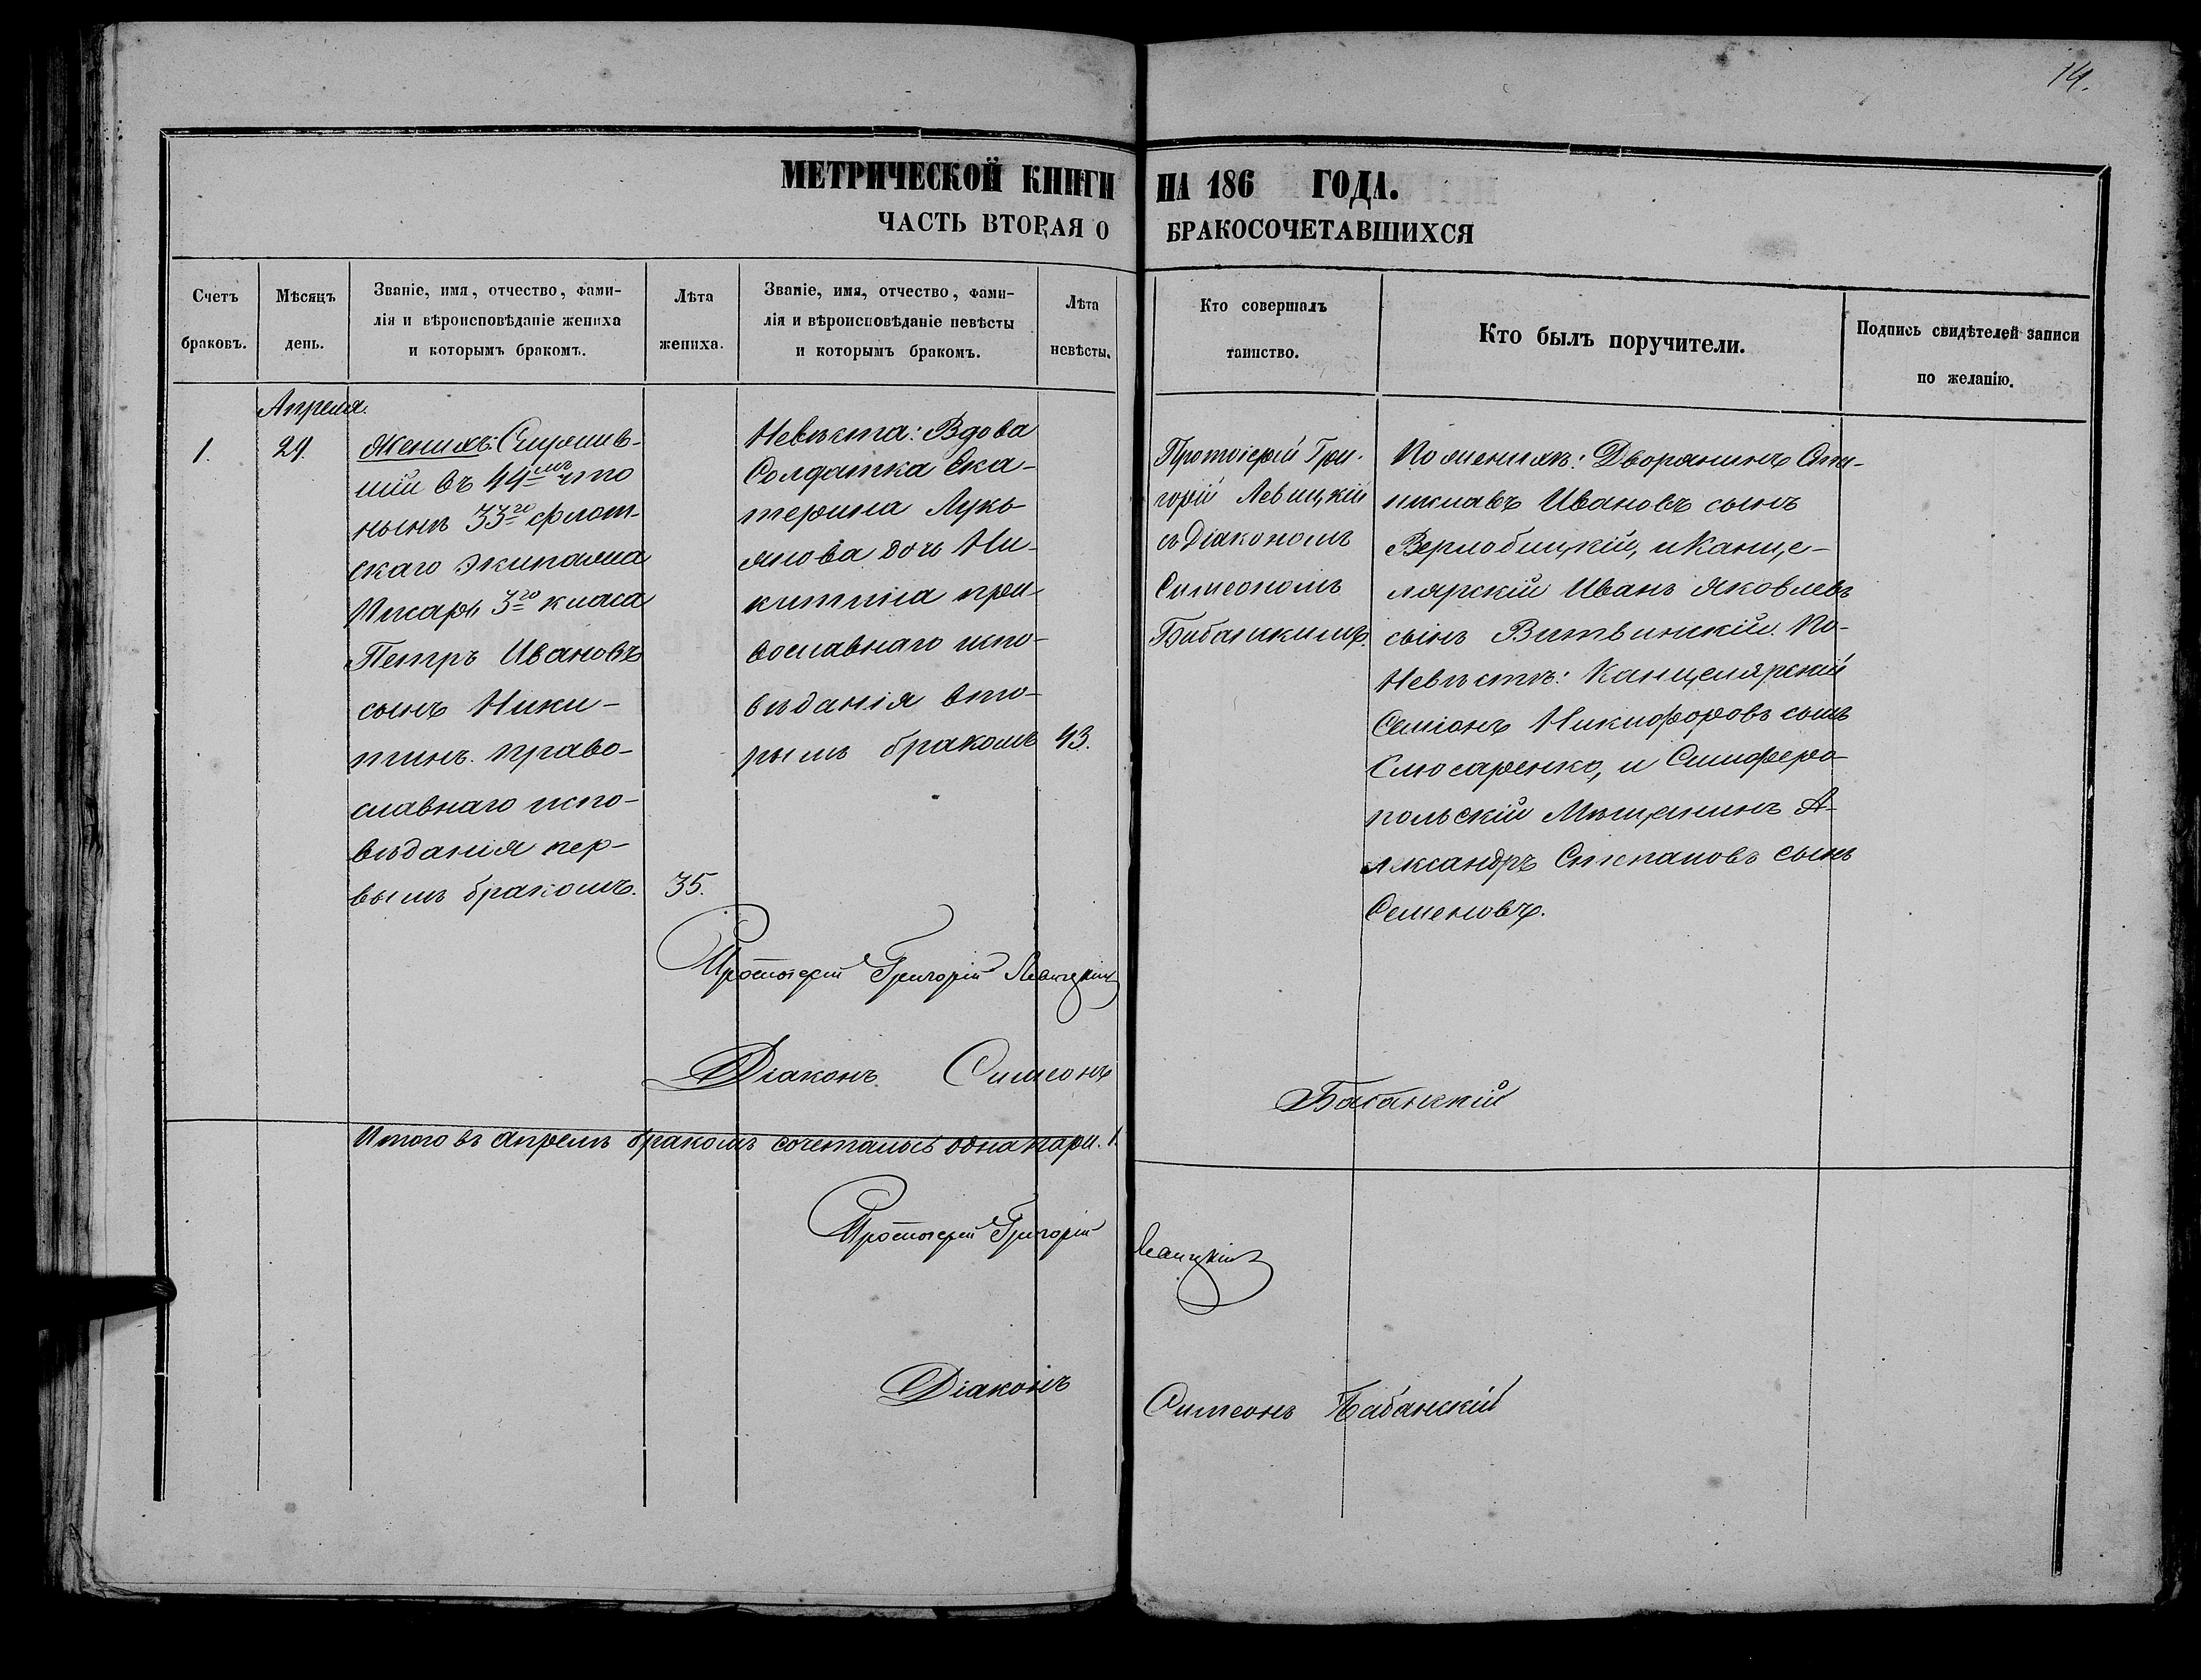 14.
МЕТРИЧЕСКОЙ КНИГИ НА 186 ГОДА.
ЧАСТЬ ВТОРАЯ О БРАКОСОЧЕТАВШИХСЯ
Счетъ
браковъ.
Мѣсяцъ
день.
Званіе, имя, отчество, фами-
лія и вѣроисповѣданіе жениха
и которымъ бракомъ.
Лѣта
жениха.
Званіе, имя, отчество, фами-
лія и вѣроисповѣданіе невѣсты
и которымъ бракомъ.
Лѣта
невѣсты.
Кто совершалъ
таинство.
Кто былъ поручители.
Подпись свидѣтелей записи
по желанію.
1.
Апреля.
24.
Женихъ: Служив-
шій въ 44мъ что
нынѣ 33го флот-
скаго экипажа
Писарь 3го класа
Петръ Ивановъ
сынъ Ники-
тинъ. право-
славнаго испо-
вѣданія пер-
вымъ бракомъ.
35.
Невѣста: Вдова
Солдатка Ека-
терина Лукь-
янова дочь Ни-
китина пра-
вославнаго испо-
вѣданія вто-
рымъ бракомъ
43.
Протоіерей Гри-
горій Левицкій
съ Діакономъ
Симеономъ
Бабанскимъ.
По женихѣ: Дворянинъ Ста-
ниславъ Ивановъ сынъ
Вербицкій, и Канце-
лярскій Иванъ Яковлевъ
сынъ Витвинскій. По-
Невѣстѣ: Канцелярскій
Семіонъ Никифоровъ сынъ
Слюсаренко, и Симферо-
польскій Мѣщанинъ А-
лександръ Степановъ сынъ
Семеновъ.
Протоіерей Григорій Левицкій
Діаконъ Симеонъ Бабанскій
Итого въ Апрелѣ бракомъ сочеталась одна пара. 1.
Протоіерей Григорій Левицкій
Діаконъ Симеонъ Бабанскій